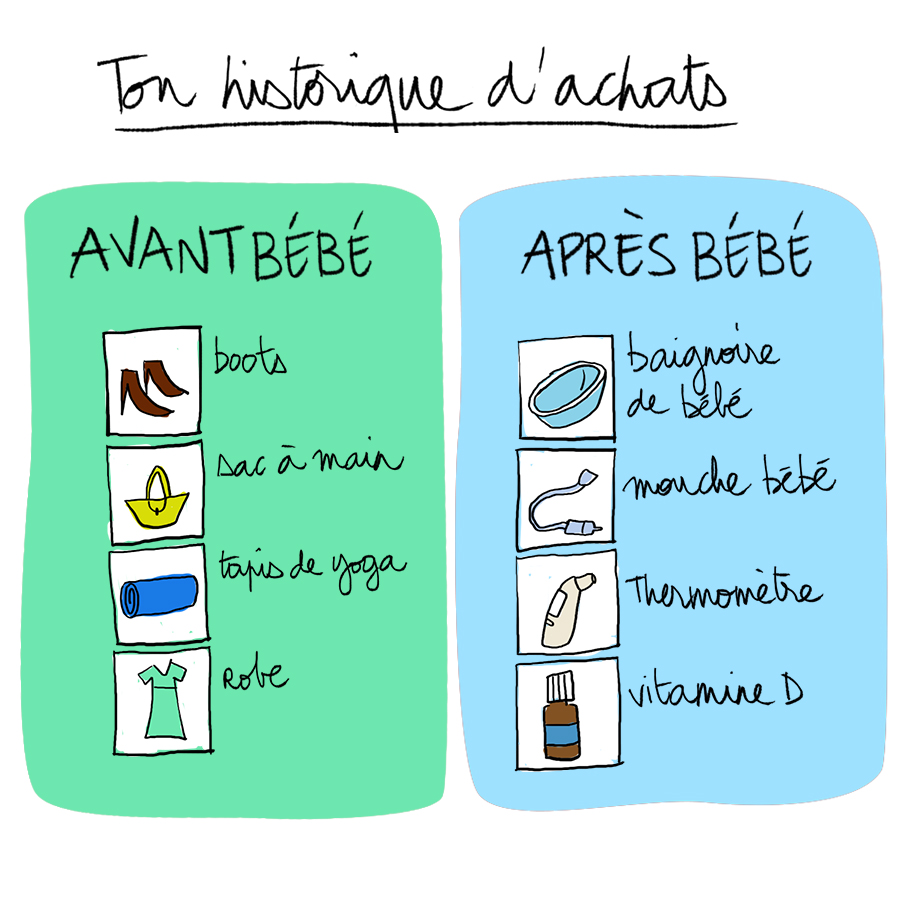 Ton historique d'achats
AVANT BÉBÉ
boots
sac à main
tapis de yoga
Robe
APRÈS BÉBÉ
baignoire
de bébé
mouche bébé
Thermomètre
vitamine D